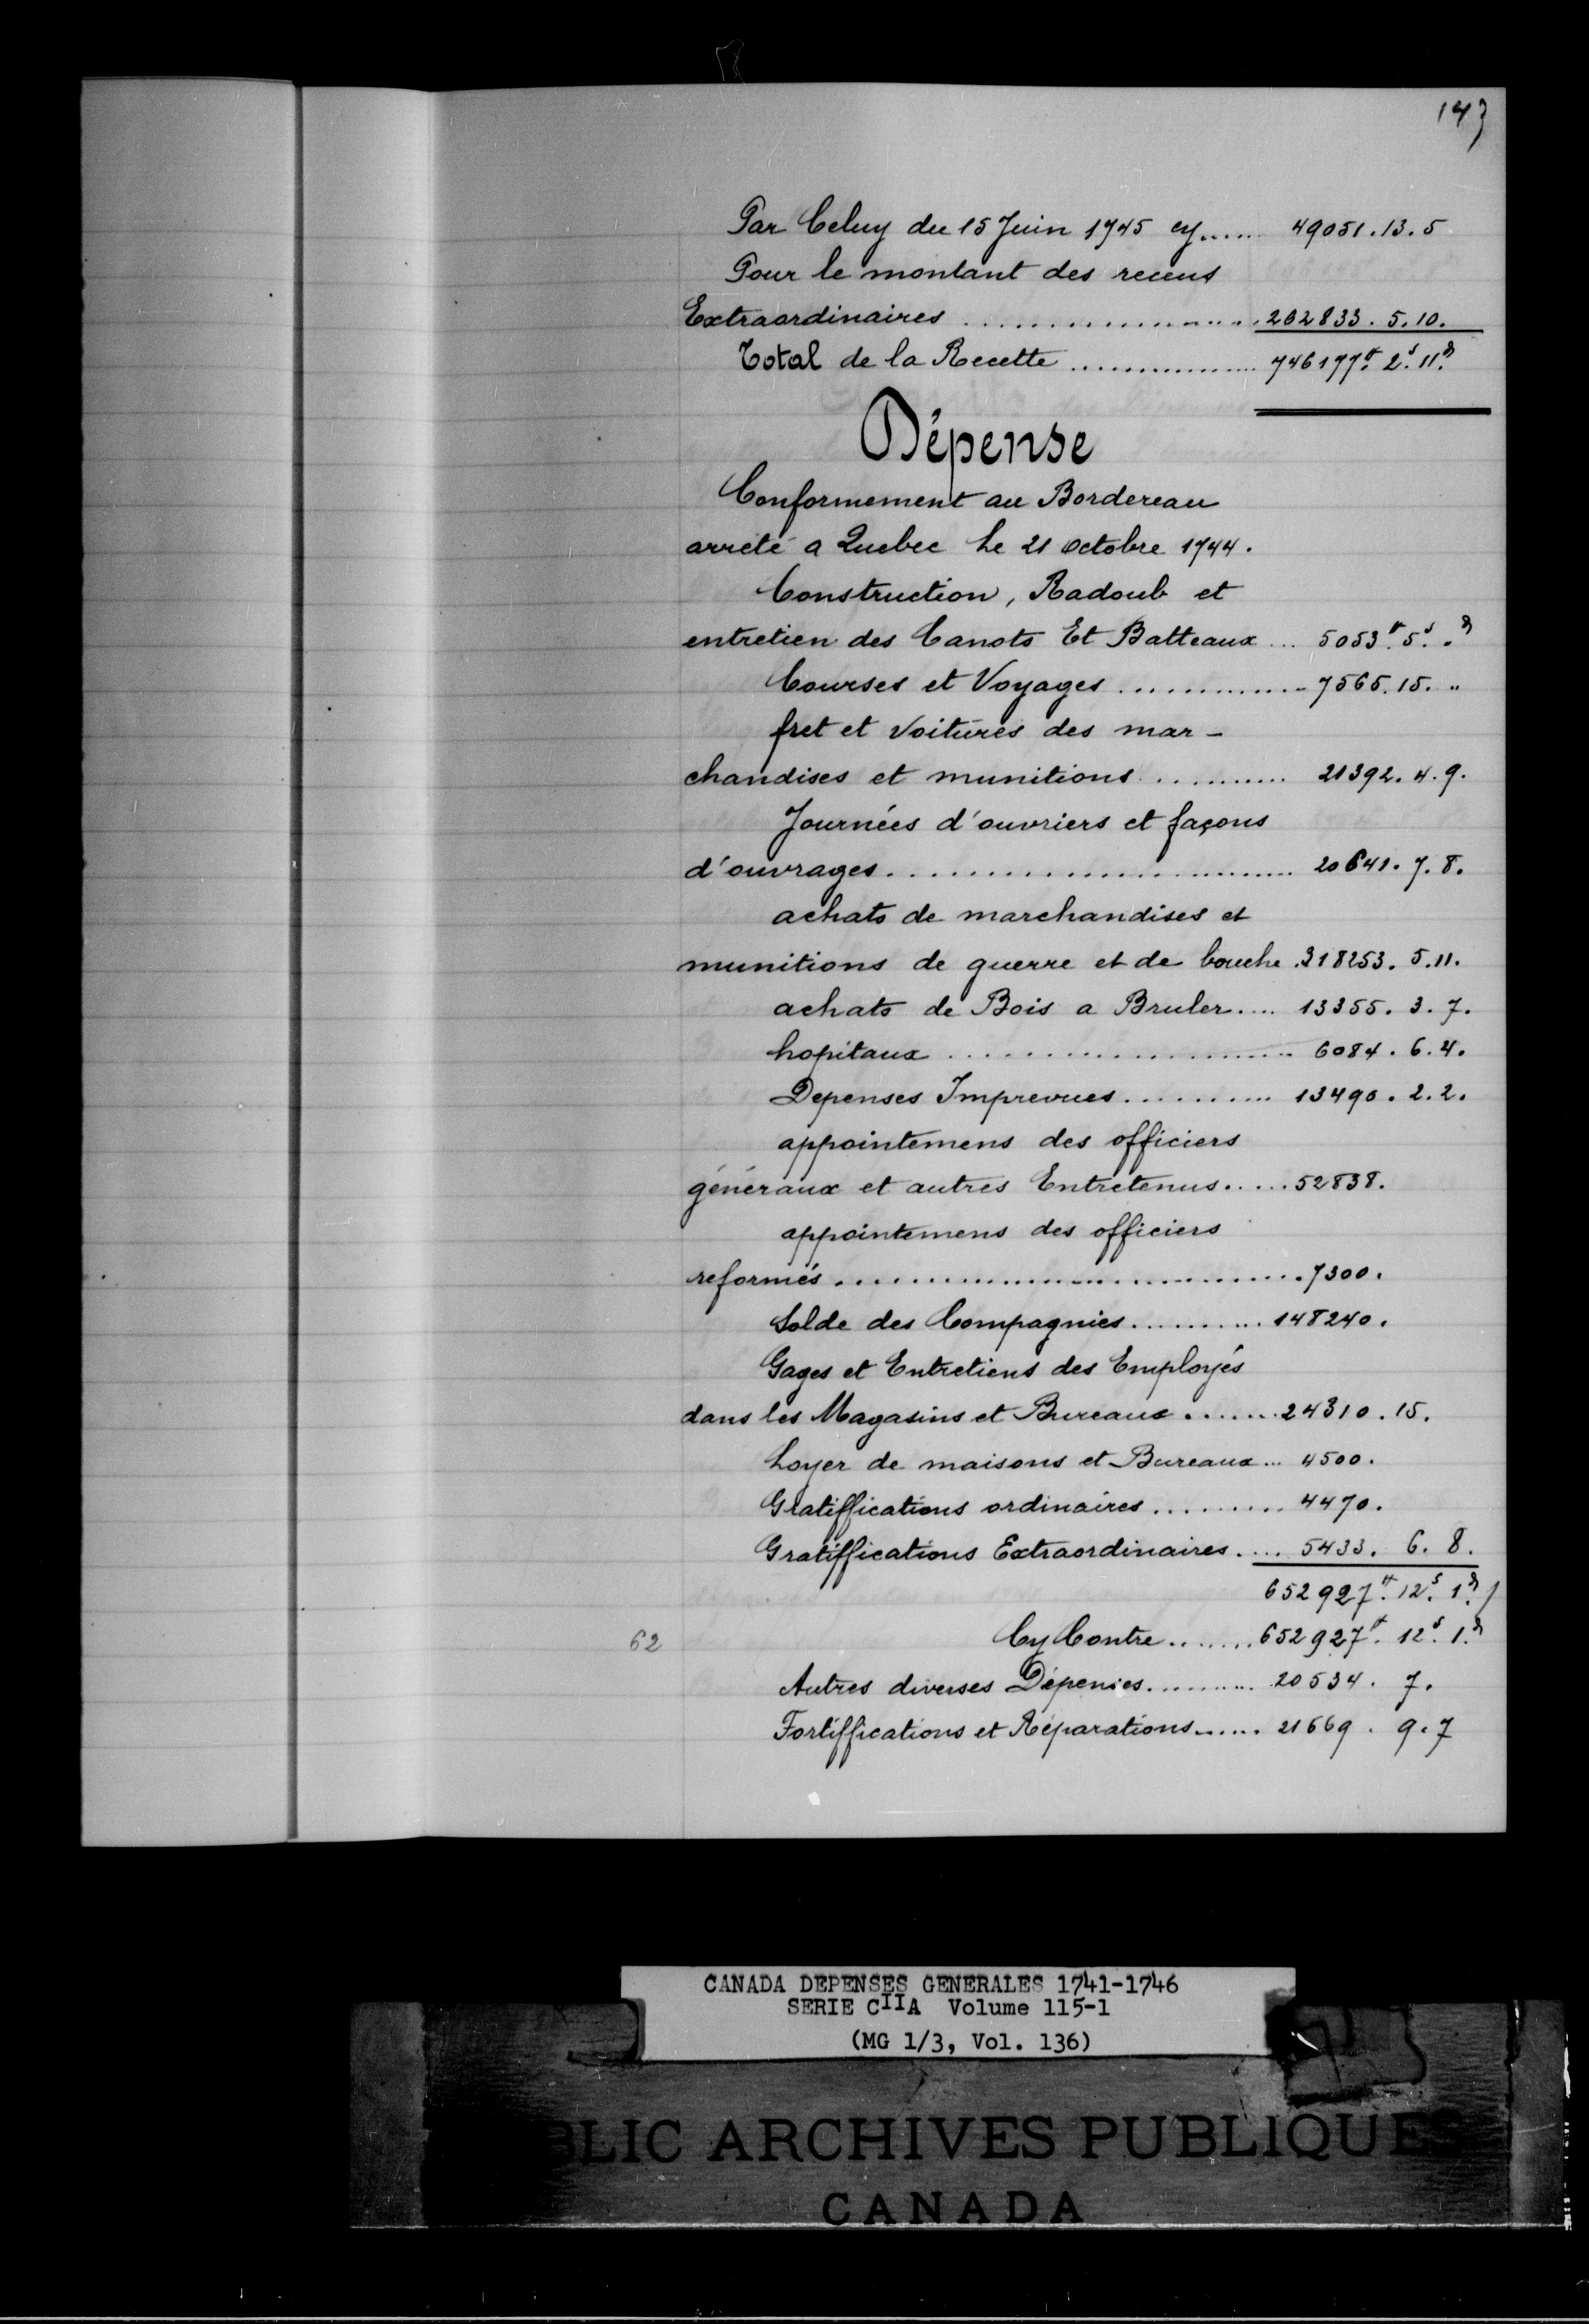 143
Par Celuy du 15 Juin 1745 cy...... 49051.13.5
Pour le montant des receus
Extraordinaires .................... 202833. 5.10.
Total de la Recette ................. 746177#. 2s. 11d.
Dépense
Conformement au Bordereau
arrêté a Quebec Le 21 Octobre 1744.
Construction, Radoub et
entretien des Canots Et Batteaux ... 5053#. 5s. "d
Courses et Voyages .............. 7565. 15. "
fret et Voitures des mar-
chandises et munitions ........... 21392. 4. 9.
Journées d'ouvriers et façons
d'ouvrages........................... 20641. 7. 8.
achats de marchandises et
munitions de guerre et de bouche .318253. 5.11.
achats de Bois a Bruler.... 13355. 3. 7.
hopitaux ........................ 6084. 6. 4.
Depenses Imprevues........... 13490. 2. 2.
appointemens des officiers
géneraux et autres Entretenus..... 52838.
appointemens des officiers
reformés.............................. 7300.
Solde des Compagnies.......... 148240.
Gages et Entretiens des Employés
dans les Magasins et Bureaux ....... 24310. 15.
Loyer de maisons et Bureaux... 4500.
Gratiffications ordinaires ......... 4470.
Gratiffications Extraordinaires..... 5433. 6. 8.
652927#. 12s. 1d. /
62 Cy Contre....... 652927#. 12s. 1d.
Autres diverses Dépenses.......... 20534. 7.
Fortiffications et Réparations...... 21669. 9. 7
CANADA DEPENSES GENERALES 1741-1746
SERIE CIIA Volume 115-1
(MG 1/3, Vol. 136)
BLIC ARCHIVES PUBLIQUES
CANADA